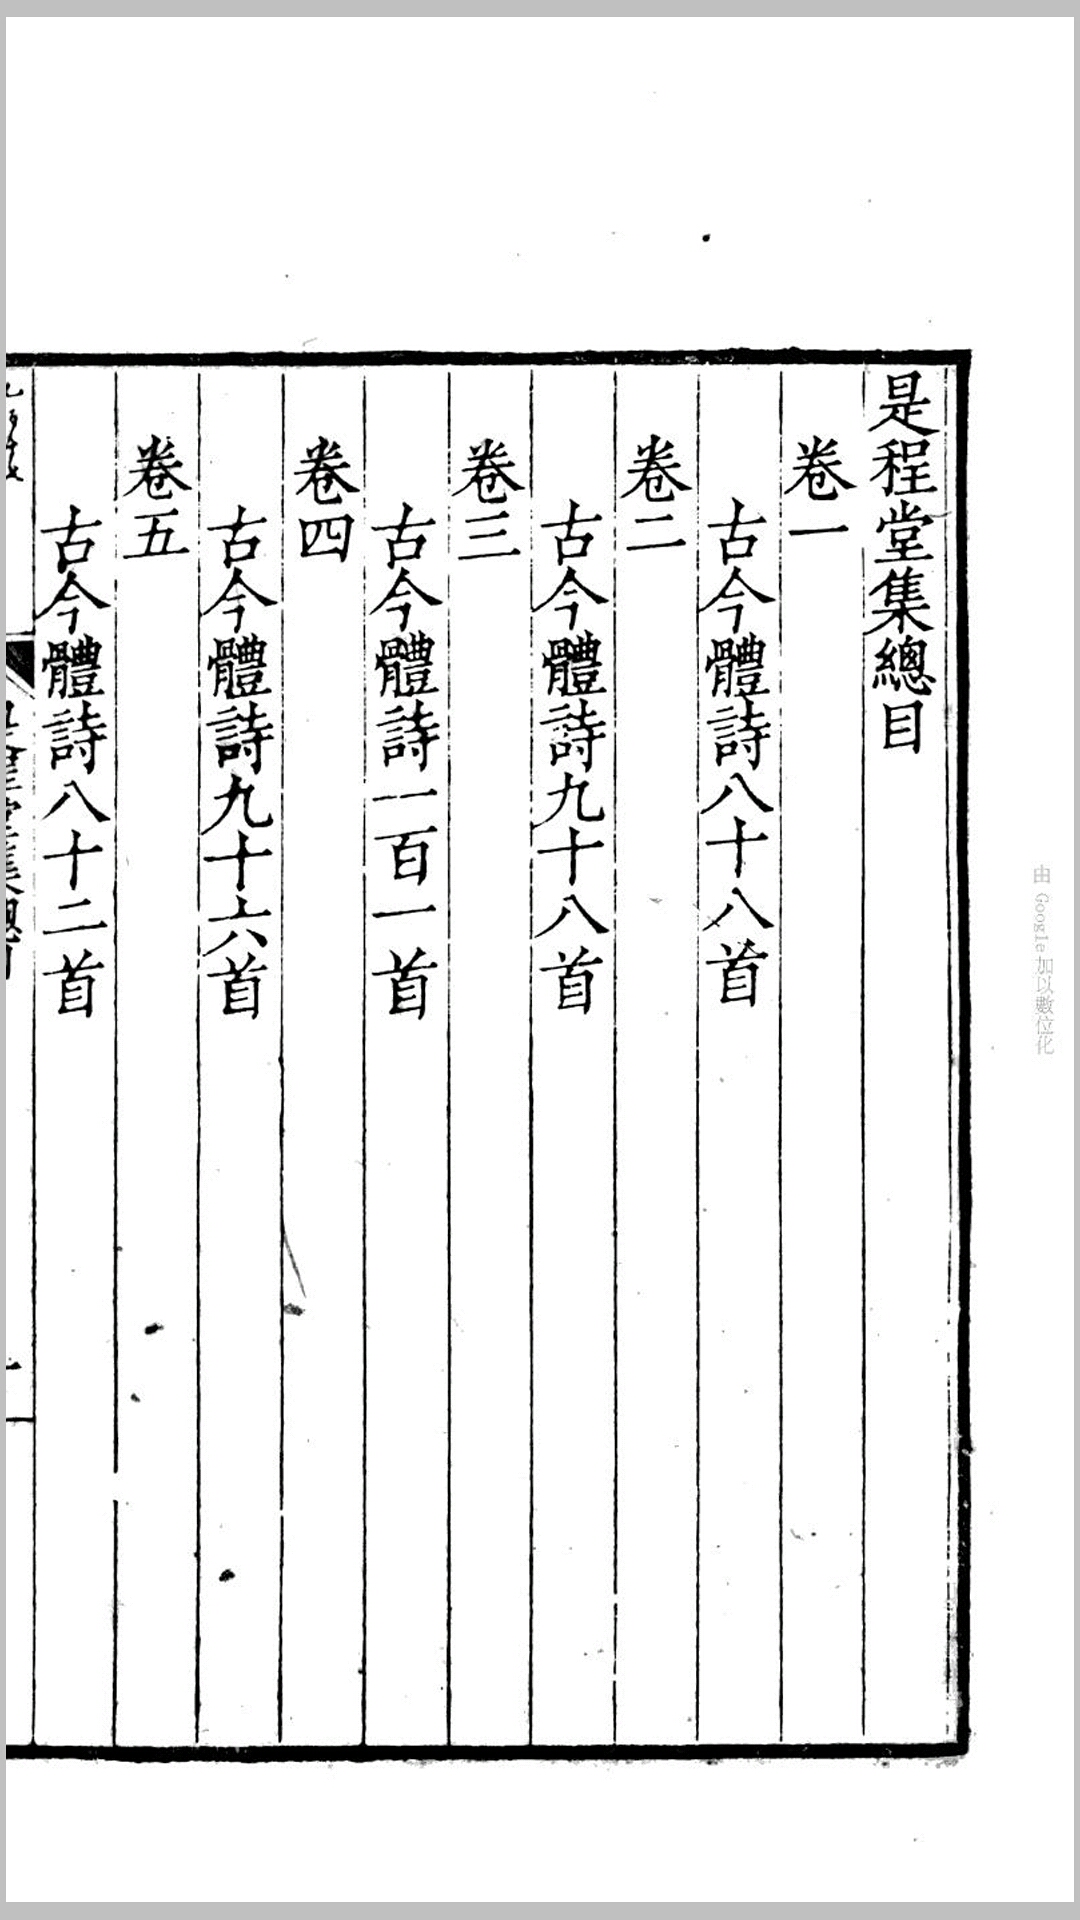 是程堂集總目
卷一
古今體詩八十八首
卷二
古今體詩九十八首
卷三
古今體詩一百一首
卷四
古今體詩九十六首
卷五
古今體詩八十二首
由 Google 加以數位化